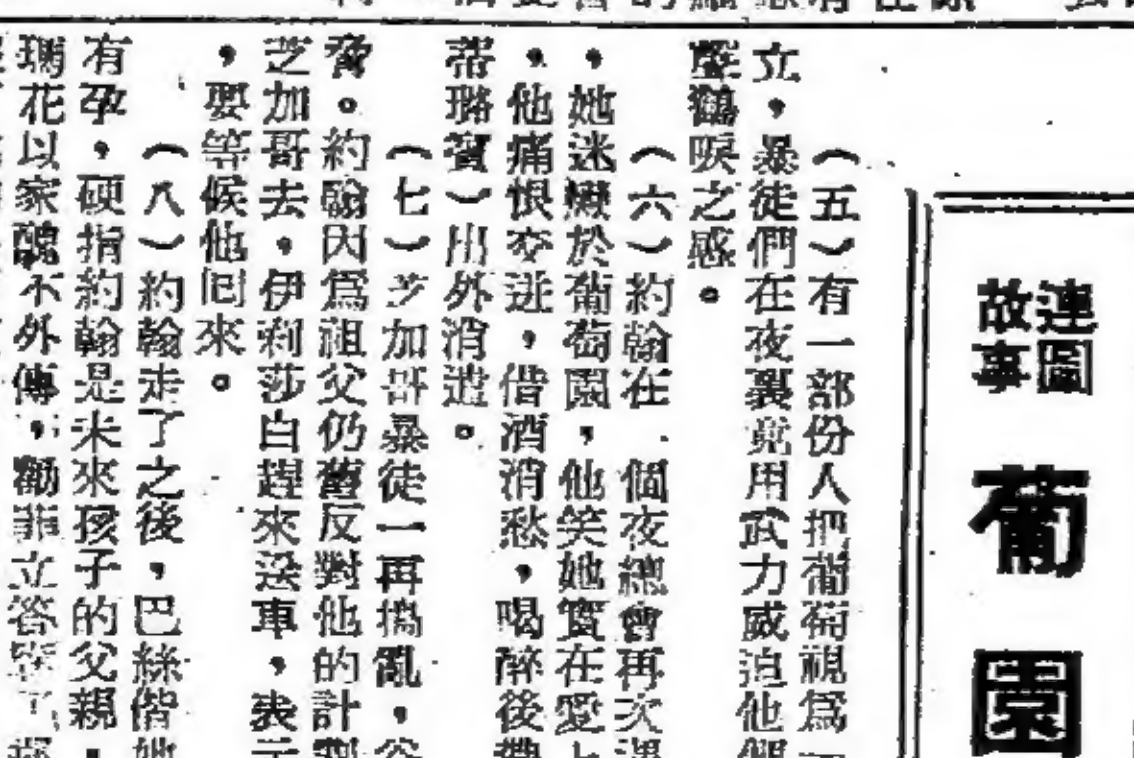 連圖
故事
葡園
（五）有一部份人把葡萄視爲一
立，暴徒們在夜裏竟用武力威迫他們
鶴唳之感。
（六）約翰在 個夜總會再次遇
，她迷戀於葡萄園，他笑她實在愛上
，他痛恨交迸，借酒消愁，喝醉後帶
璐寶）出外消遣。
（七）芝加哥暴徒一再搗亂，谷
脅。約翰因爲祖父仍舊反對他的計劃
芝加哥去，伊利莎白趕來送車，表示
，要等候他囘來。
（八）約翰走了之後，巴絲偕她
有孕，硬指約翰是未來孩子的父親，
瑪花以家醜不外傳，勸菲立答